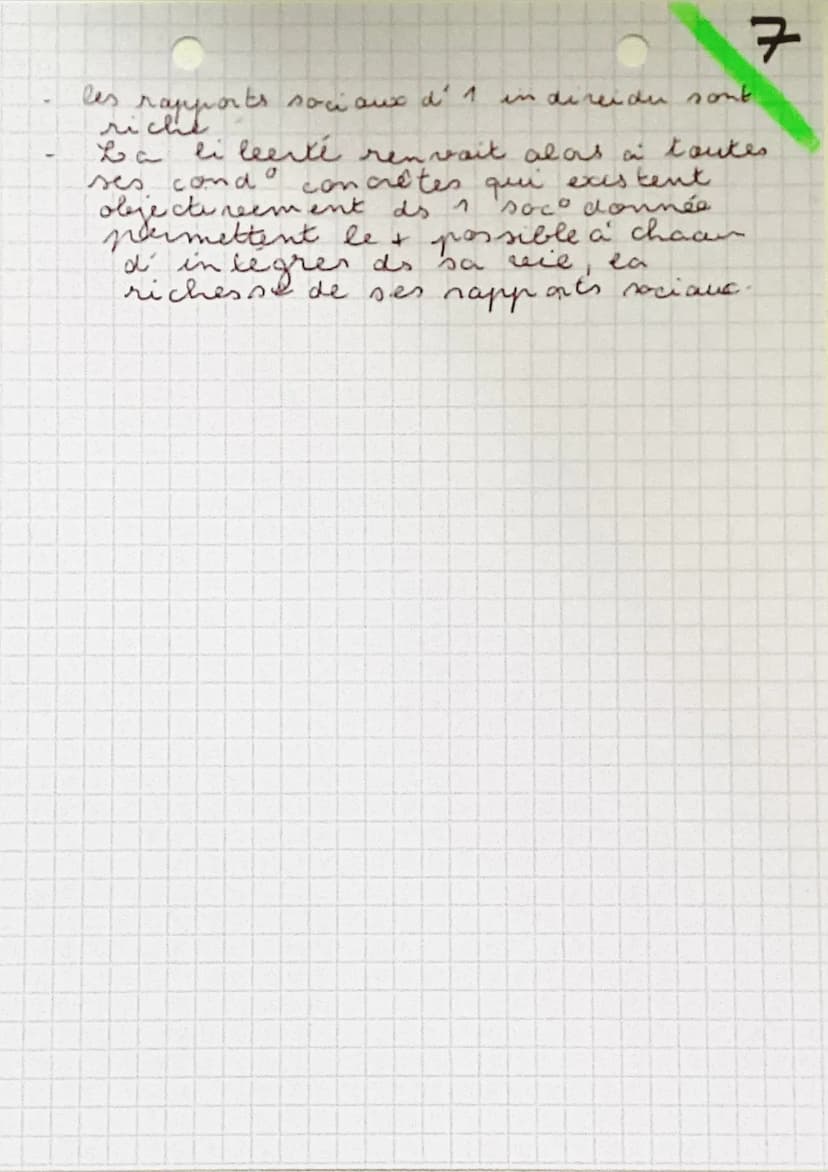 7
- les rapports sociaux d' 1 individu sont
riche
- La liberté renvoit alors à toutes
ses cond° concrètes qui existent
objectivement ds 1 soc° donnée
permettent le + possible à chacun
d' intégrer ds sa vie, la
richesse de ses rapports sociaux.